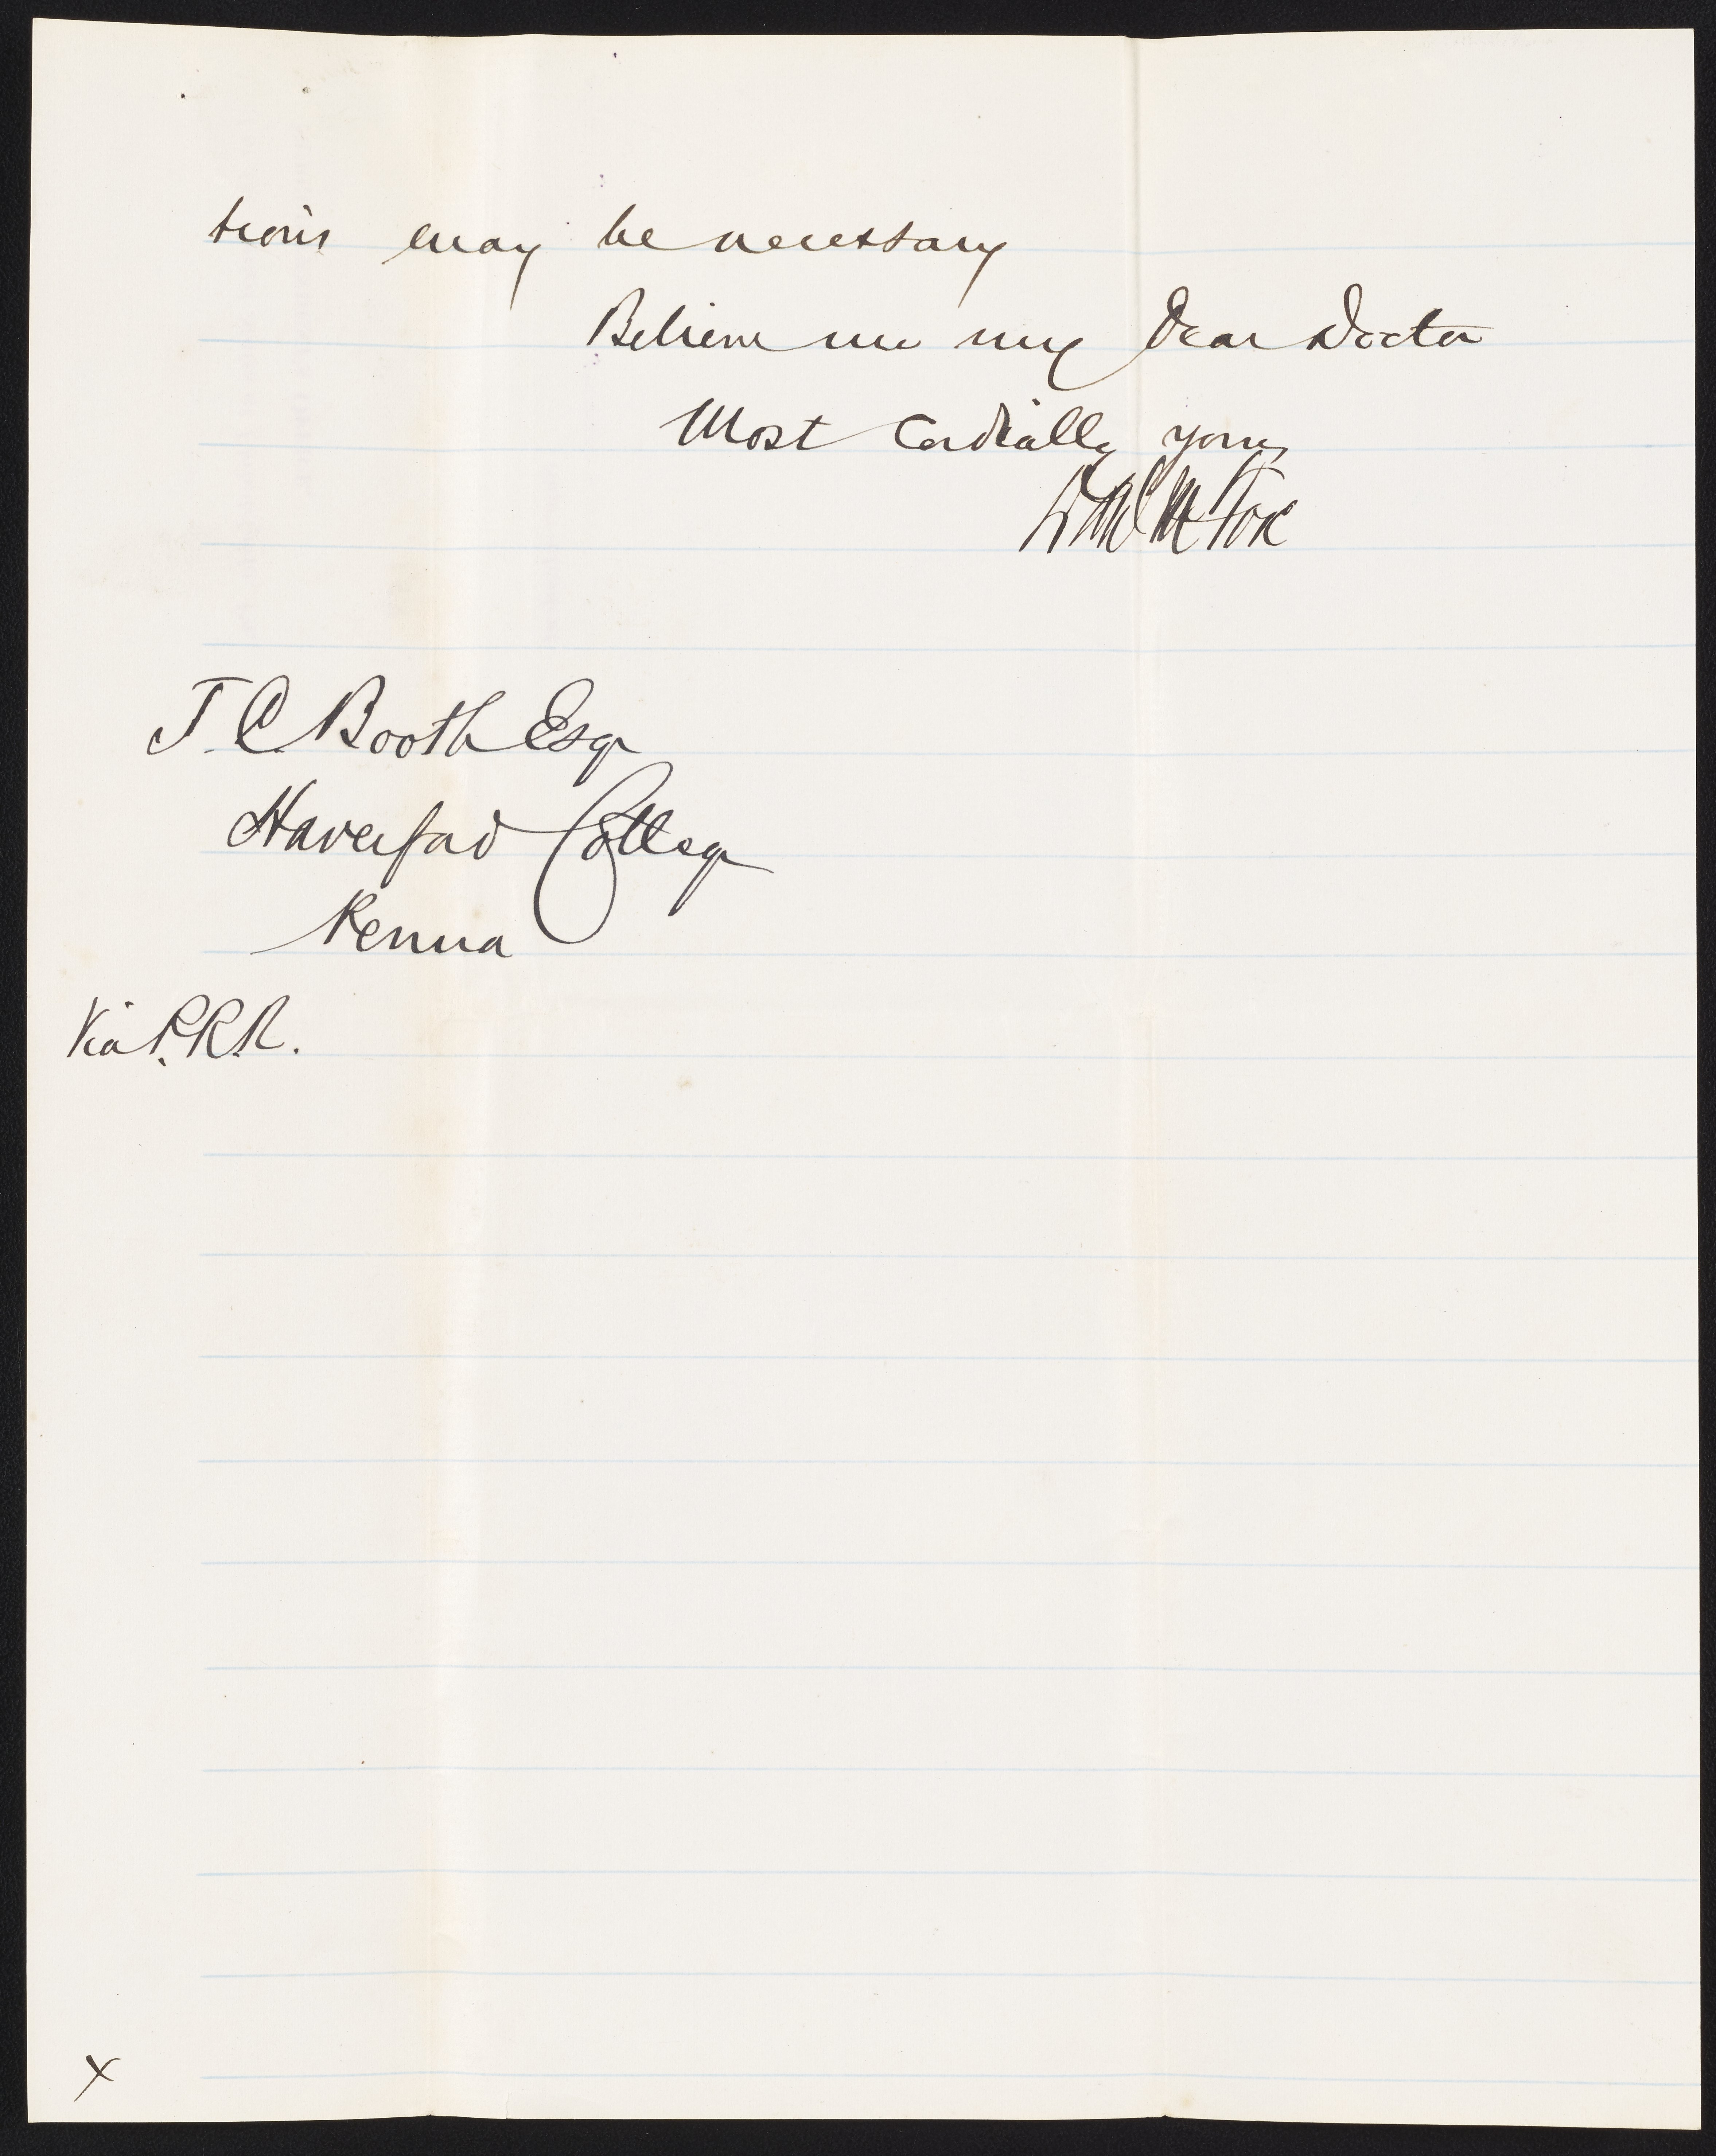 tions may be necessary
Believe me my Dear Doctor
Most Cordially yours
D M Fox
J. C. Booth Esqr
Haverford College
Penna
Via P.R.R.
X